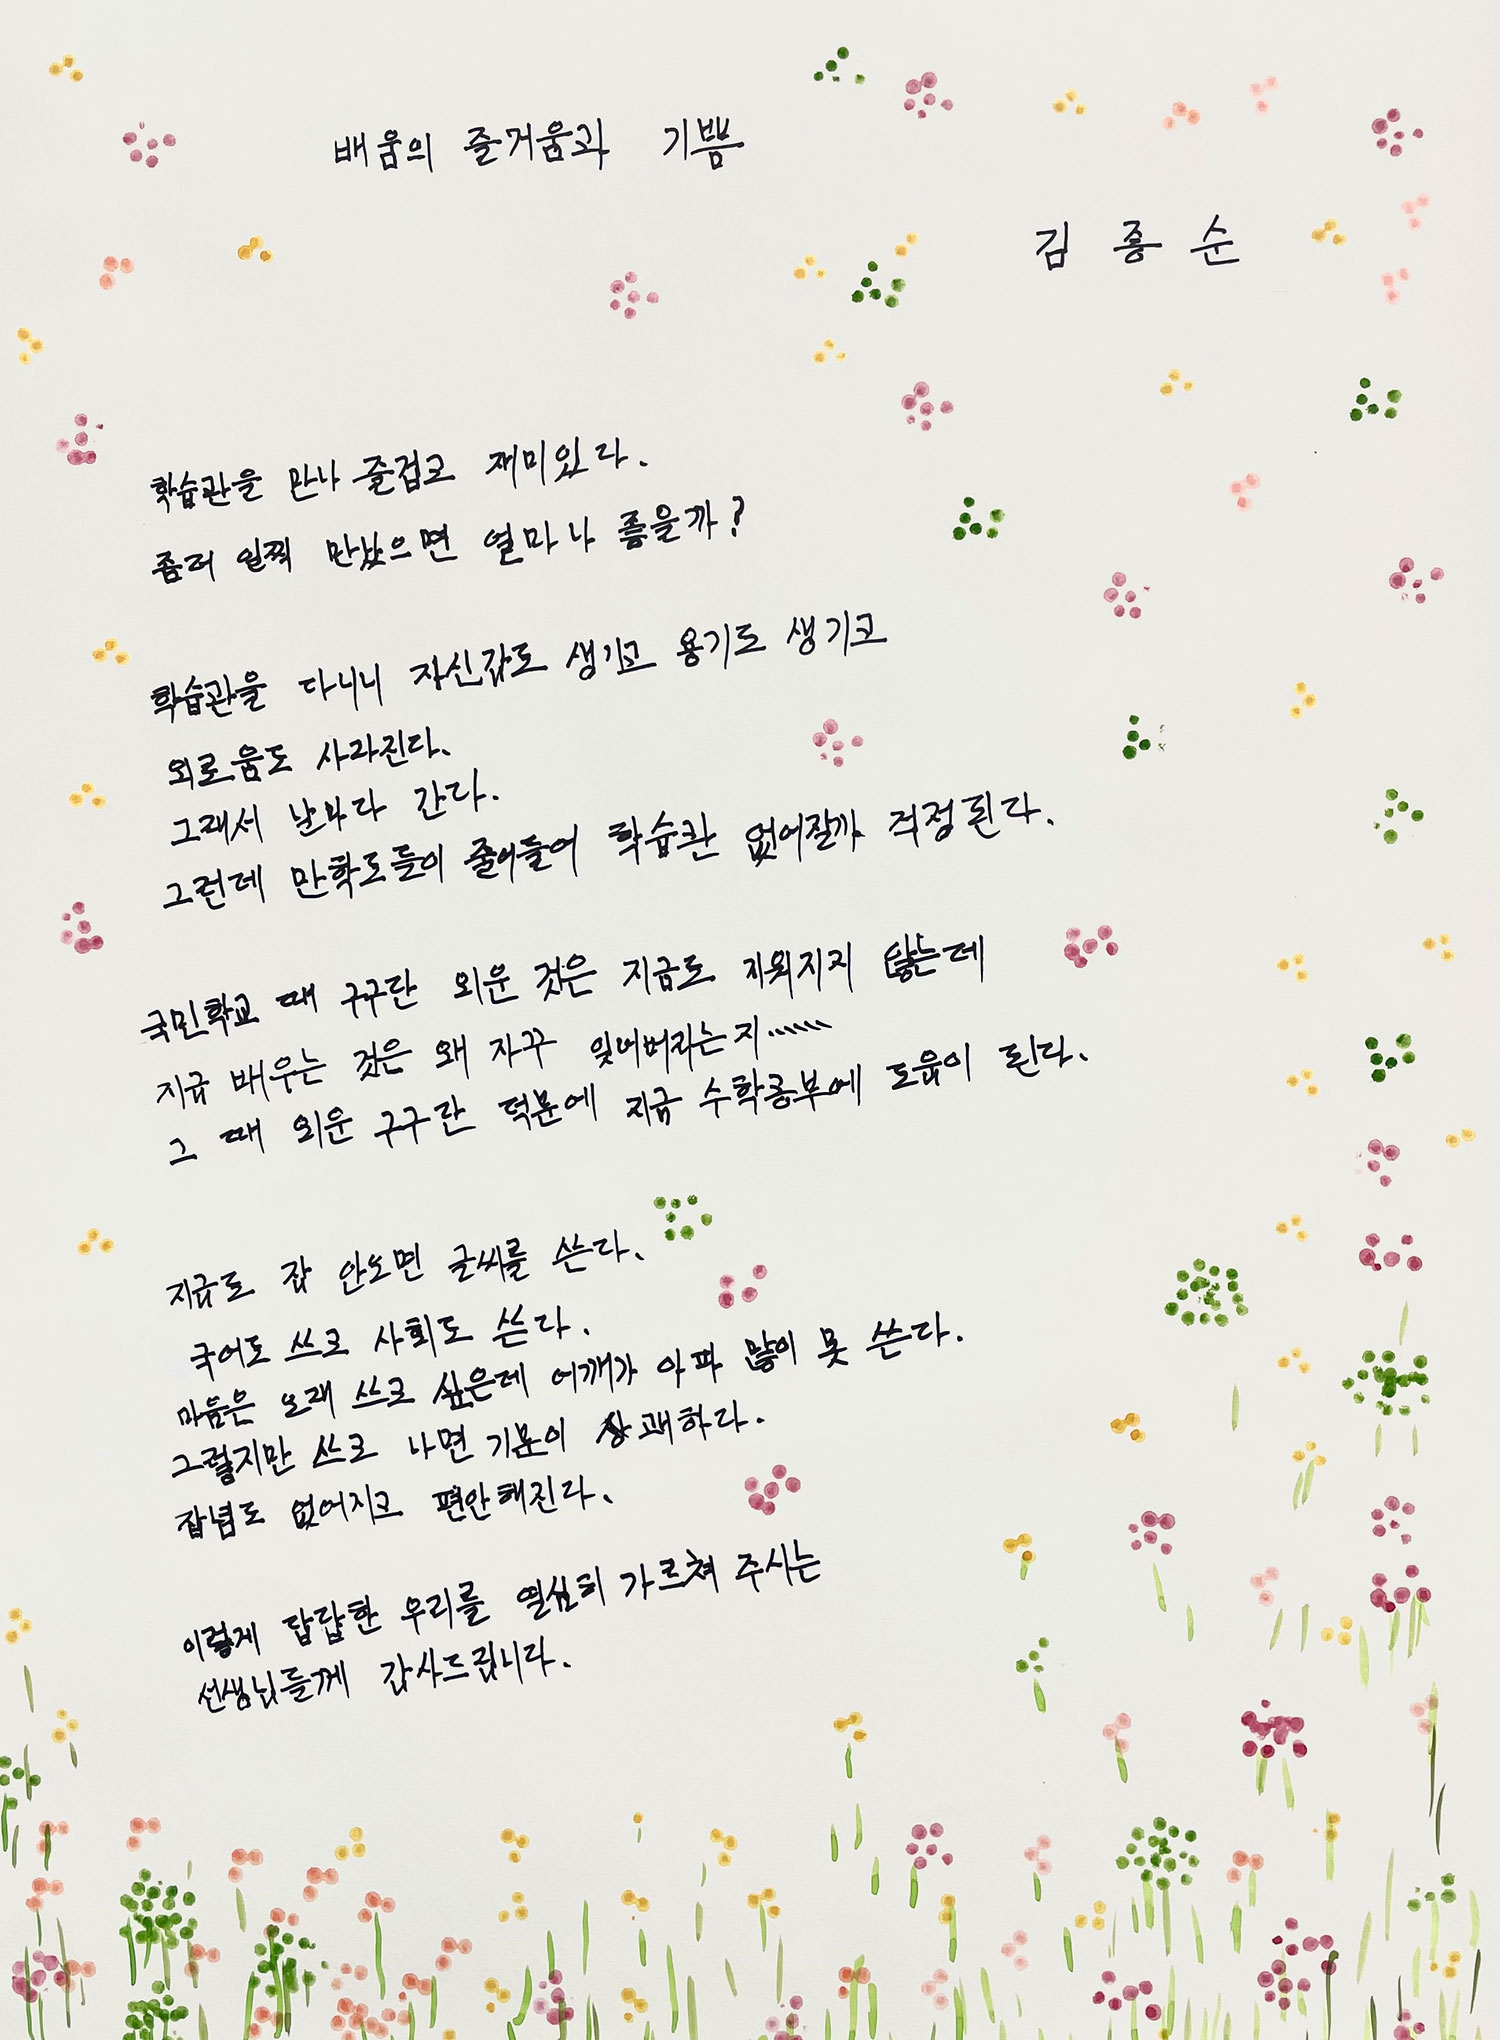 배움의 즐거움과 기쁨
김종순
학습관을 만나 즐겁고 재미있다.
좀더 일찍 만났으면 얼마나 좋을까?
학습관을 다니니 자신감도 생기고 용기도 생기고
외로움도 사라진다.
그래서 날마다 간다.
그런데 만학도들이 줄어들어 학습관 없어질까 걱정된다.
국민학교 때 구구단 외운 것은 지금도 지워지지 않는데
지금 배우는 것은 왜 자꾸 잊어버리는지……
그 때 외운 구구단 덕분에 지금 수학공부에 도움이 된다.
지금도 잠 안오면 글씨를 쓴다.
국어도 쓰고 사회도 쓴다.
마음은 오래 쓰고 싶은데 어깨가 아파 많이 못 쓴다.
그렇지만 쓰고 나면 기분이 상쾌하다.
잡념도 없어지고 편안해진다.
이렇게 답답한 우리를 열심히 가르쳐 주시는
선생님들께 감사드립니다.